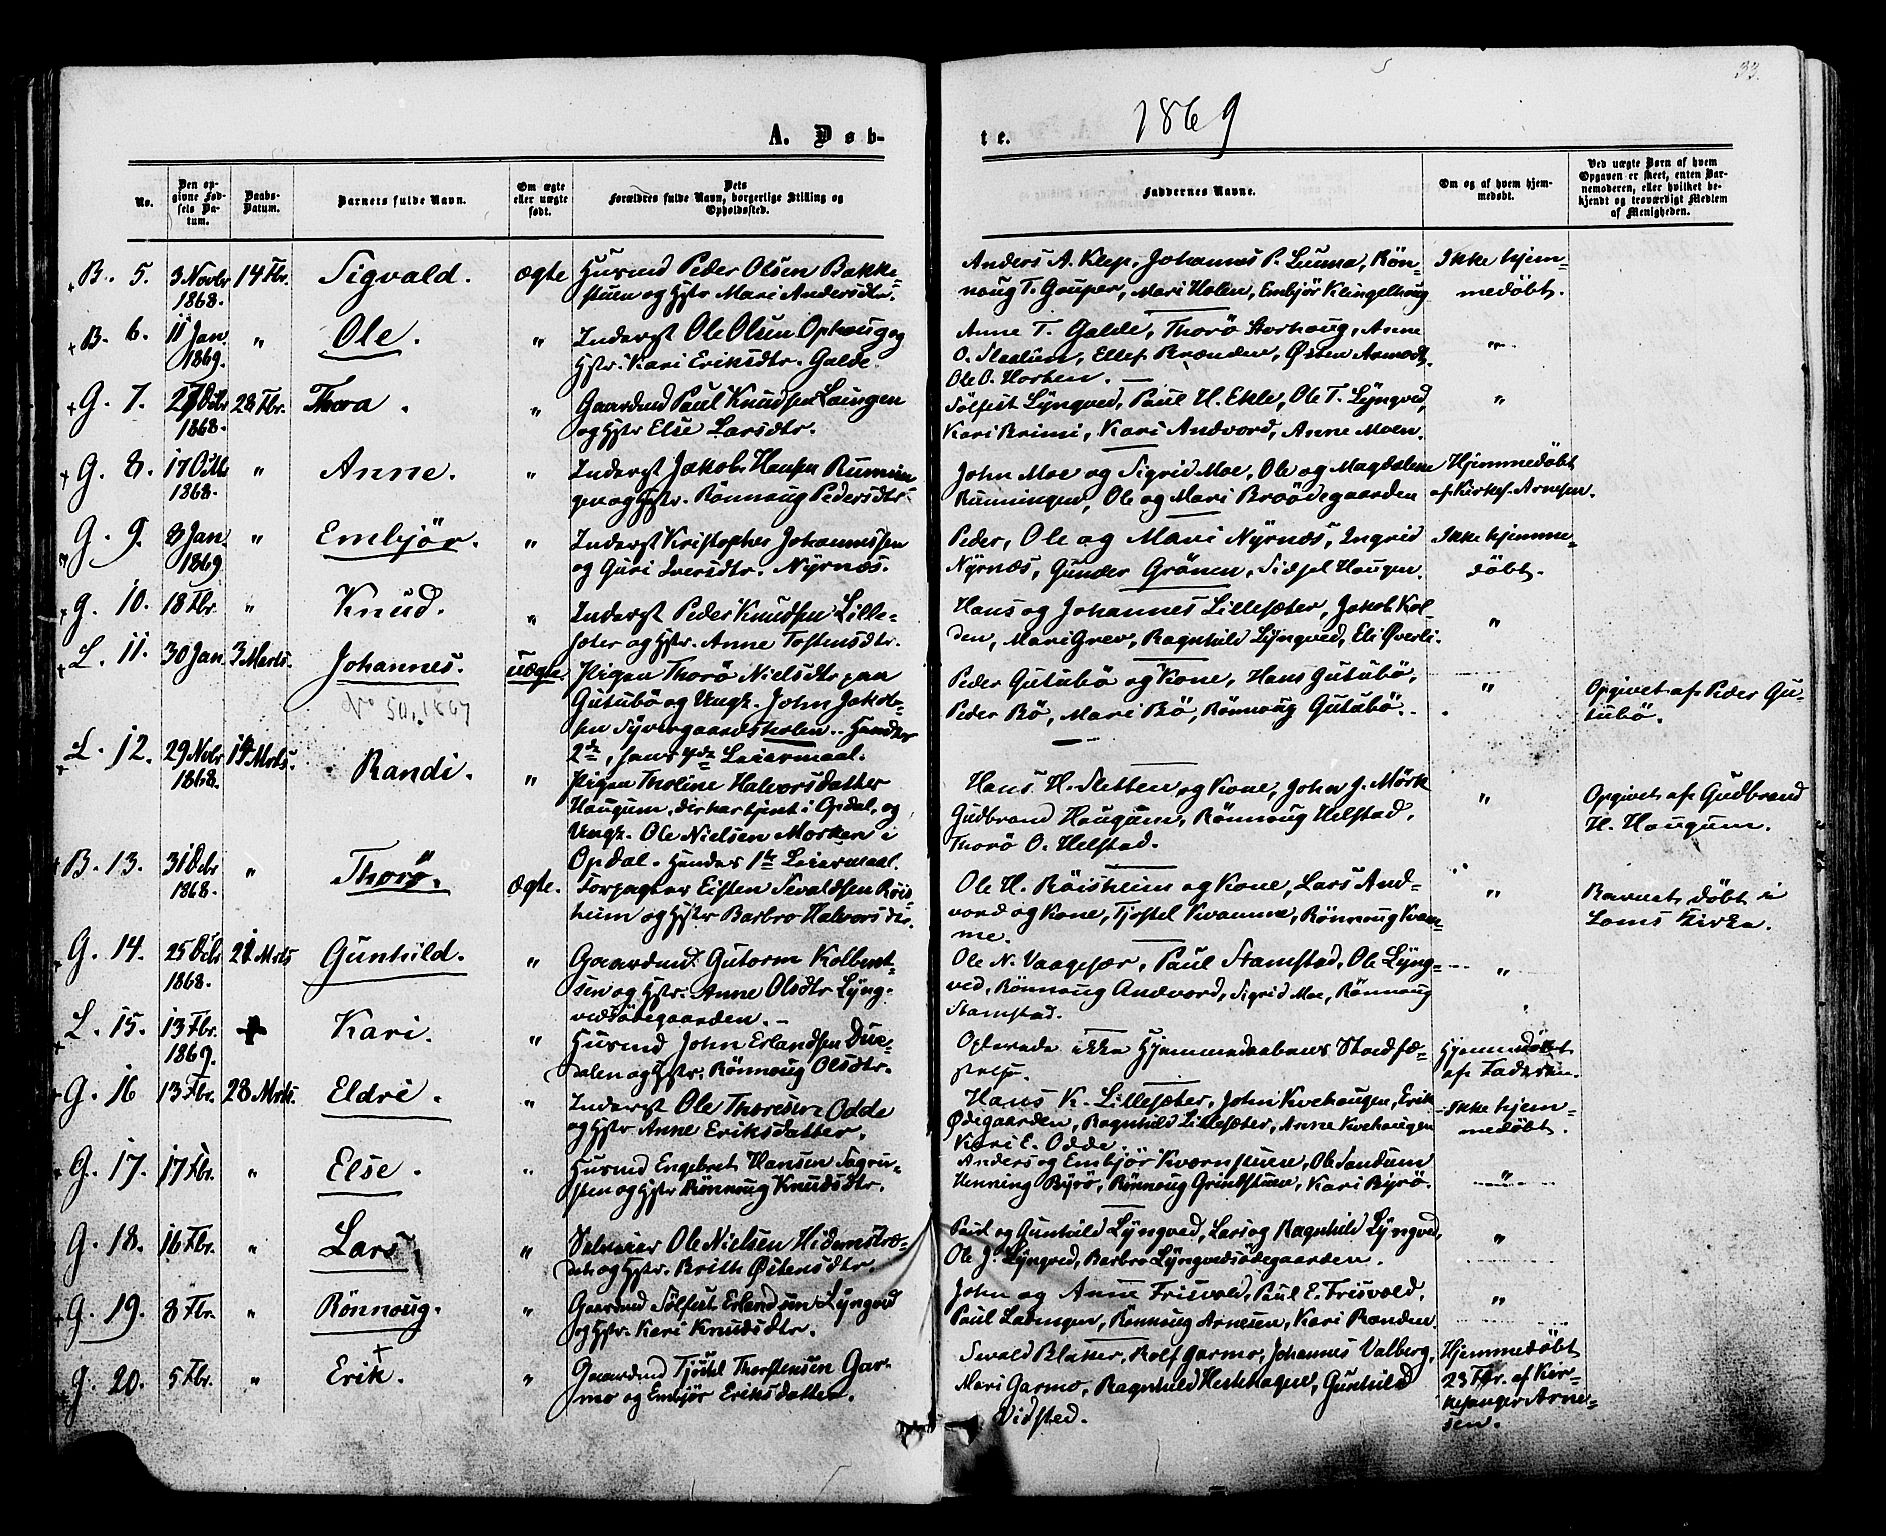 33.
1869
A. Døb-
te.
No.
Den op-
givne Fød-
sels Da-
tum.
Daabs-
Datum.
Barnets fulde Navn.
Om ægte
eller uægte
født.
Dets
Forældres fulde Navn, borgerlige Stilling og
Opholdssted.
Faddernes Navne.
Om og af hvem hjem-
medøbt.
Ved uægte Børn af hvem
Opgaven er skeet, enten Bar-
nemoderen, eller hvilket be-
kjendt og troværdigt Medlem
af Menigheden.
B. 5. 3 Novbr 1868. 14 Fbr. Sigvald. ægte
Husmd Peder Olsen Bakke-
stuen og Hstr Mari Andersdtr.
Anders A. Klep, Johannes P. Runn-
noug T. Gauper, Mari Holen, Embjör Klingelhoug
Ikke hjem-
medøbt.
B. 6. 11 Jan. 1869. " Ole. "
Indergt Ole Olsen Ophoug og
Hstr. Kari Eriksdtr. Galde.
Anne T. Galde, Thorö Storhoug, Anne
O. Slaalien, Ellef Brænden, Østen Armodt,
Ole O. Horten.
"
G. 7. 27 Octbr 1868. 28 Fbr. Thora. "
Gaardmd Paul Knudsen Loingen
og Hstr Else Larsdtr.
Sölfest Lÿngved, Paul H. Ekle, Ole T. Lÿngved,
Kari Brimi, Kari Andvord, Anne Moen.
"
G. 8. 17 Octb 1868. " Anne. "
Indergt Jakob Hansen Runnin-
gen og Hstr. Rönnoug Pedersdtr.
John Moe og Sigrid Moe, Ole og Magdalene
Runningen, Ole og Mari Broödegaarden
Hjemmedöbt
af Kirkes. Arnesen.
G. 9. 8 Jan. 1869 " Embjör. "
Indergt Kristopher Johannessen
og Guri Iversdtr. Nÿrnæs.
Peder, Ole og Mari Nÿrnæs, Ingrid
Nÿrnæs, Gunder Grönen, Sidsel Haugen.
Ikke hjemme-
döbt.
G. 10. 18 Fbr. " Knud. "
Indergt Peder Knudsen Lille-
sæter og Hstr. Anne Tostensdtr.
Hans og Johannes Lillesæter, Jakob Kol-
den, Mari Grev, Ragnhild Lÿngved, Eli Øverli.
"
L. 11. 30 Jan. 3 Marts. Johannes. uægte
No 50, 1867
Pigen Thorö Nielsdtr paa
Gutubö og Ungk. John Jakob-
sen Syvergaardsholen. Hendes
2de, hans 4de Leiermaal.
Peder Gutubö og Kone, Hans Gutubö,
Peder Bö, Mari Bö, Rönnoug Gutubö.
"
Opgivet af Peder Gu-
tubö.
L. 12. 29 Novbr 1868. 14 Mrts. Randi. "
Pigen Tholine Halvorsdatter
Haugum, der har tjent i Opdal, og
Ungk. Ole Nielsen Morken i
Opdal. Hendes 1ste Leiermaal.
Hans H. Sletten og Kone, John J. Mörk
Gudbrand Haugum, Rönnoug Helstad,
Thorö O. Helstad.
"
Opgivet af Gudbrand
H. Haugum.
B. 13. 31 Decbr 1868. " Thorö. ægte.
Forpagter Eisten Sevaldsen Röis-
heim og Hstr Barbro Halvorsdtr.
Ole H. Röisheim og Kone, Lars And-
vord og Kone, Tjostel Kvamme, Rönnoug Kvam-
me.
"
Barnet döbt i
Loms Kirke.
G. 14. 25 Decbr 1868. 21 Mrts Gunhild. "
Gaardmd. Gutorm Kolbent-
sen og Hstr. Anne Olsdtr Lÿng-
vedsödegaarden.
Ole N. Vaagesær, Paul Stamstad, Ole Lÿng-
ved, Rönnoug Andvord, Sigrid Moe, Rönnoug
Stamstad.
"
L. 15. 13 Fbr. 1869. + Kari. "
Husmd John Erlandsen Due-
dalen og Hstr. Rönnoug Olsdtr.
Opterede ikke Hjemmedaabens Stadfæ-
stelse.
Hjemmedöbt
af Faderen.
G. 16 13 Fbr. 28 Mrts. Eldri. "
Indergt Ole Thoresen Odde
og Hstr Anne Eriksdatter.
Hans K. Lillesæter, John Kvehaugen, Erik
Ødegaarden, Ragnhild Lillesæter, Anne Kvehaugen
Kari E. Odde.
Ikke hjem-
medöbt.
G. 17. 17 Fbr. " Else. "
Husmd Engebret Hansen Sagru-
sten og Hstr Rönnoug Knudsdtr.
Anders og Embjör Kvernstuen, Ole Sandum
Henning Byrö, Rönnoug Grindstuen, Kari Byrö.
"
G. 18. 16 Fbr. " Lars "
Selveier Ole Nielsen Hidemstræ-
de og Hstr. Brith Østensdtr.
Paul og Gunhild Lÿngved, Lars og Ragnhild Lÿngved,
Ole J. Lÿngved, Barbro Lÿngvedsödegaarden.
"
G. 19. 8 Fbr. " Rönnoug. "
Gaardmd Sölfest Erlandsen Lÿngved
og Hstr. Kari Knudsdtr.
John og Anne Frisvold, Paul E. Frisvold,
Paul Ladingen, Rönnoug Arnesen, Kari Randen.
"
G. 20. 5 Fbr. " Erik. "
Gaardmd Tjöstel Thorstensen Gar-
mo og Embjör Eriksdatter.
Sevald Blaker, Rolf Garmo, Johannes Valberg,
Mari Garmo, Ragnhild Hestehagen, Gunhild
Vidsted.
Hjemmedöbt
23 Fbr. af Kir-
kesanger Arne-
sen.